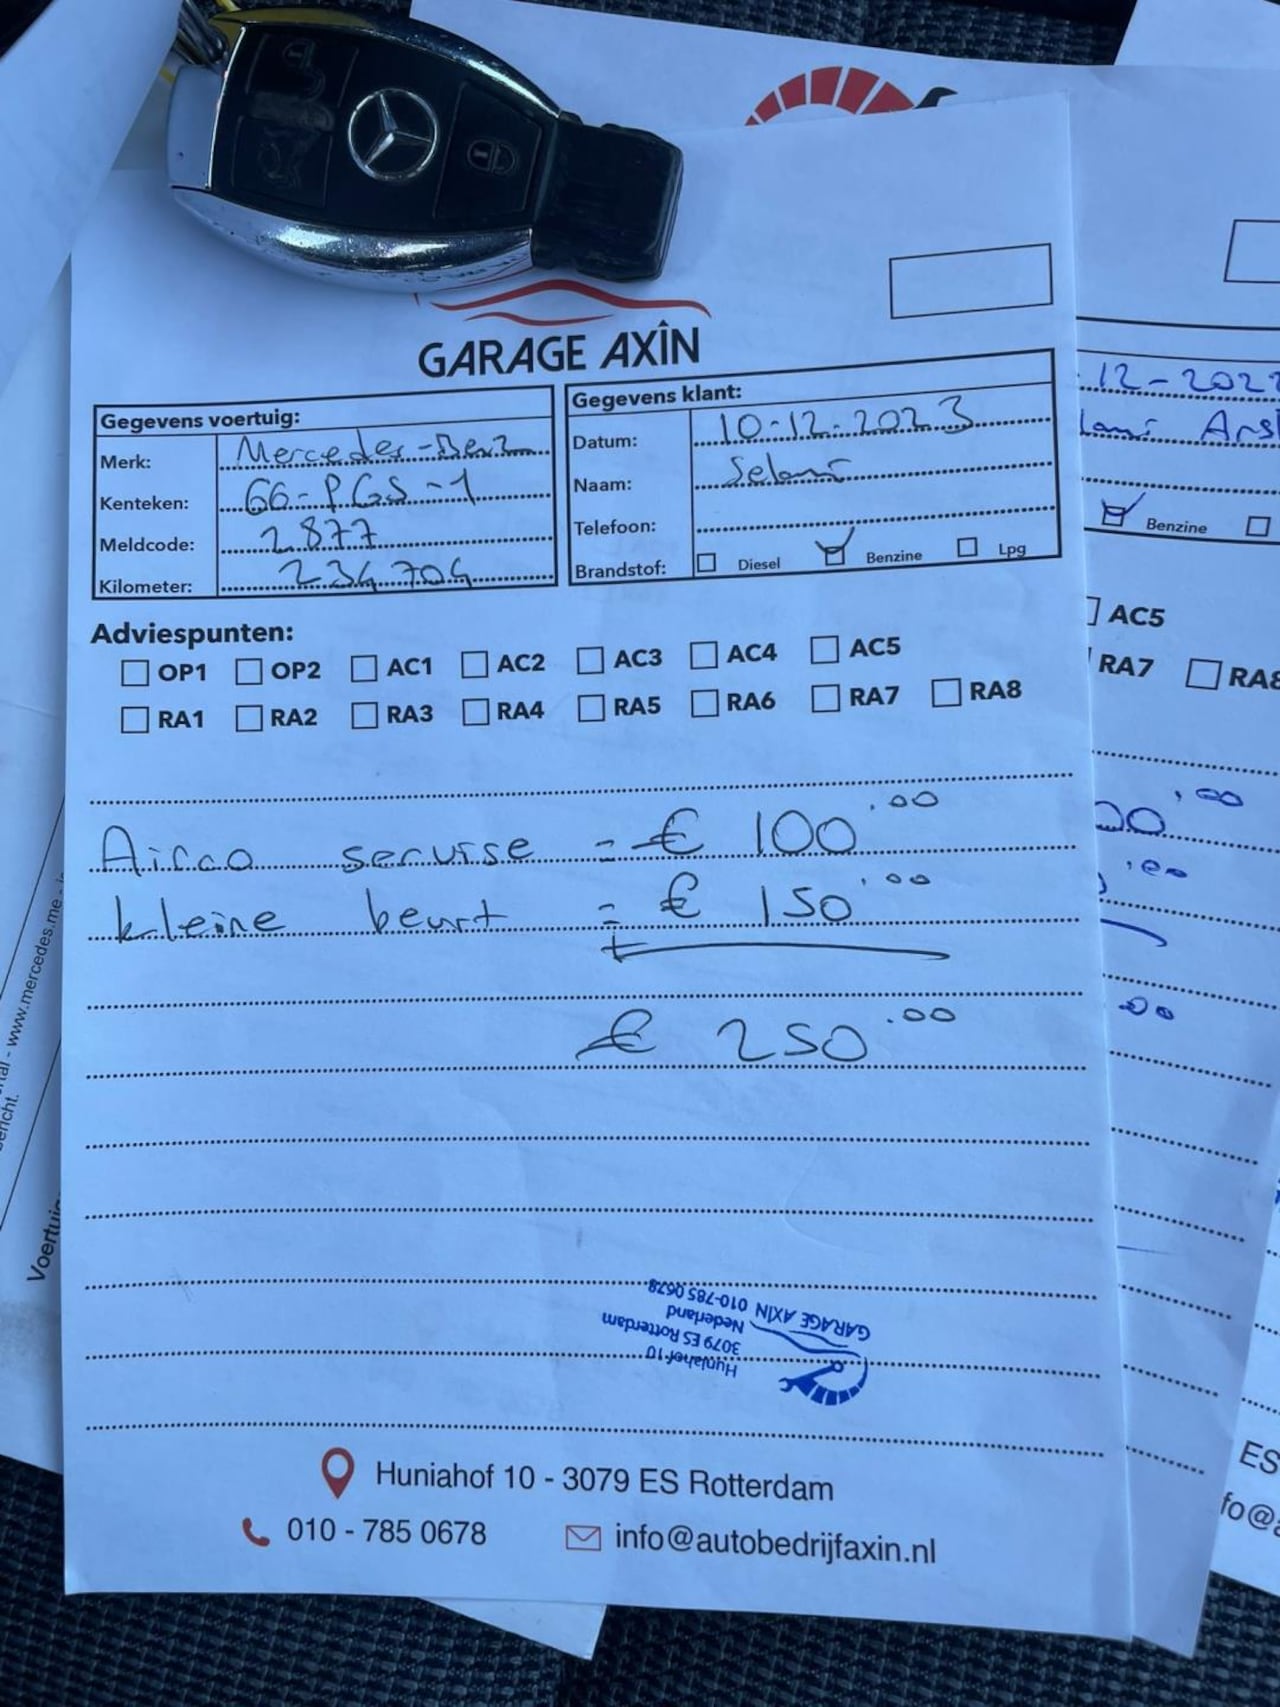 GARAGE AXÎN
Gegevens voertuig:
Merk: Mercedes-Benz
Kenteken: 66-PGS-1
Meldcode: 2877
Kilometer: 234704
Gegevens klant:
Datum: 10-12-2023
Naam: Selami
Telefoon:
Brandstof: Diesel Benzine Lpg
Adviespunten:
OP1 OP2 AC1 AC2 AC3 AC4 AC5
RA1 RA2 RA3 RA4 RA5 RA6 RA7 RA8
Airco servise = € 100.00
kleine beurt = € 150.00
€ 250.00
GARAGE AXÎN 010-785 0678
Nederland
3079 ES Rotterdam
Huniahof 10
Huniahof 10 - 3079 ES Rotterdam
010 - 785 0678
info@autobedrijfaxin.nl
12-202
Benzine
AC5
RA7 RA8
.00
.00
00
ES
www.mercedes.me